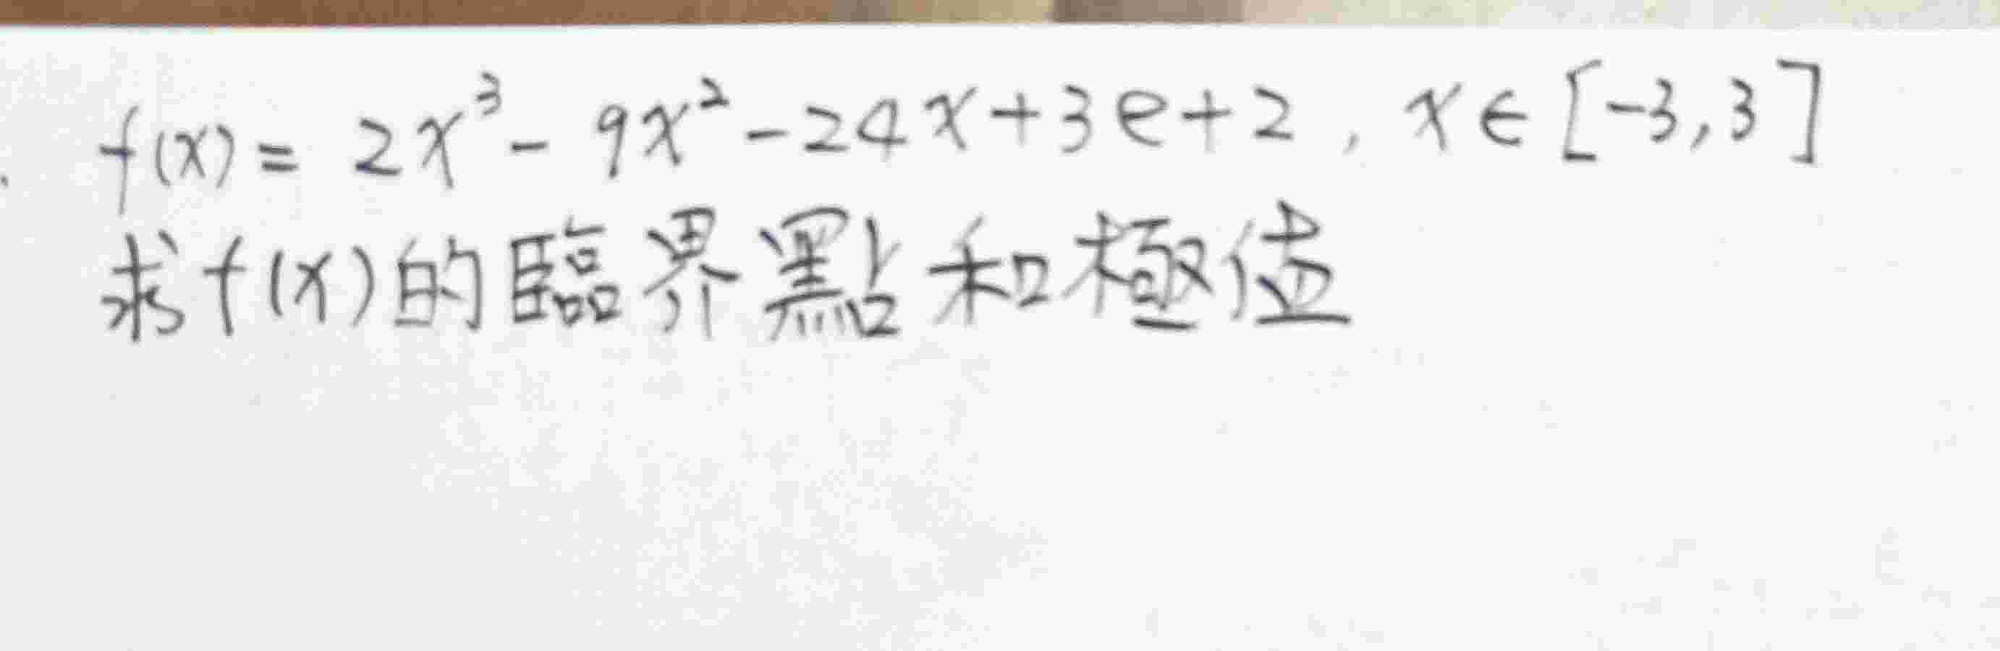 f(x) = 2x³ - 9x² - 24x + 3e + 2 , x ∈ [-3,3]
求f(x)的臨界點和極值